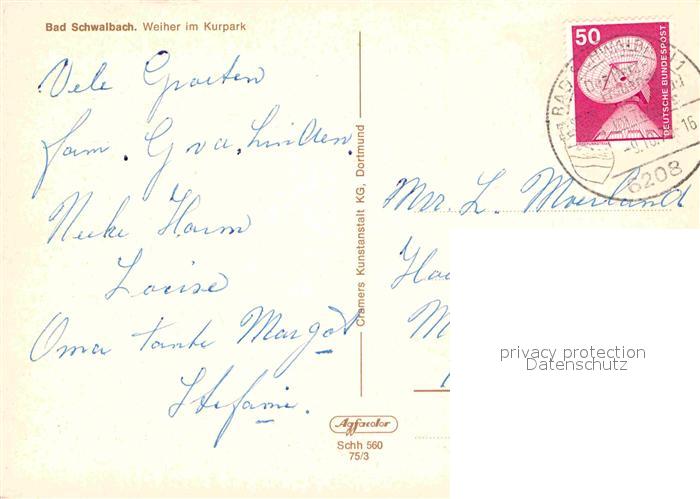 Bad Schwalbach. Weiher im Kurpark
Vele Groeten
fam. G v.a. Linden.
Neeke Harm
Louise
Oma tante Margot
Stefanie.
Cramers Kunstanstalt KG, Dortmund
Agfacolor
Schh 560
75/3
50
DEUTSCHE BUNDESPOST
BAD SCHWALBACH 1
16
6208
Mrr. L. Moerland
privacy protection
Datenschutz